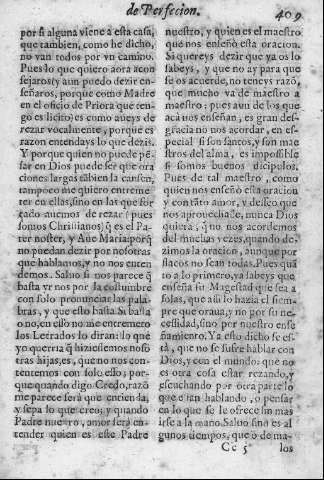 de Perfecion. 409
por si alguna viene a esta casa,
que tambien, como he dicho,
no van todos por vn camino.
Pues lo que quiero aora acon
sejaros (y aun puedo dezir en-
señaros, porque como Madre
en el oficio de Priora que ten-
go es licito) es como aueys de
rezar vocalmente, porque es
razon entendays lo que dezis.
Y porque quien no puede pē-
sar en Dios puede ser que ora
ciones largas tābien la cansen,
tampoco me quiero entreme
ter en ellas, sino en las que for
çado auemos de rezar (pues
somos Christianos) q̃ es el Pa-
ter noster, y Aue Maria: porq̃
no puedan dezir por nosotras
que hablamos, y no nos enten
demos. Saluo si nos parece q̃
basta yr nos por la costumbre
con solo pronunciar las pala-
bras, y que esto basta. Si basta
o no, en esso no me entremeto
los Letrados lo diran: lo que
yo querria q̃ hiziessemos noso
tras hijas, es, que no nos con-
tentemos con solo esso: por-
que quando digo Credo, razō
me parece será que entiēda,
y sepa lo que creo; y quando
Padre nuestro, amor será en-
tender quien es este Padre
nuestro, y quien es el maestro
que nos enseñò esta oracion.
Si quereys dezir que ya os lo
sabeys, y que no ay para que
se os acuerde, no teneys razō,
que mucho va de maestro a
maestro: pues aun de los que
acà nos enseñan, es gran des-
gracia no nos acordar, en es-
pecial si son santos, y son mae
stros del alma, es impossible
si somos buenos dicipulos.
Pues de tal maestro, como
quien nos enseñò esta oracion
y con tāto amor, y desseo que
nos aprouechasse, nunca Dios
quiera, q̃ no nos acordemos
del muchas vezes, quando de-
zimos la oracion, aunque por
flacos no sean todas. Pues quā
to a lo primero, ya sabeys que
enseña su Magestad que sea a
solas, que assi lo hazia el siem-
pre que oraua, y no por su ne-
cessidad, sino por nuestro ense
ñamiento. Ya esto dicho se es-
tà, que no se sufre hablar con
Dios, y con el mundo: que no
es otra cosa estar rezando, y
escuchando por otra parte lo
que estan hablando, o pensar
en lo que se le ofrece sin mas
irse a la mano. Saluo sino es al
gunos tiempos, que o de ma-
Cc 5 los